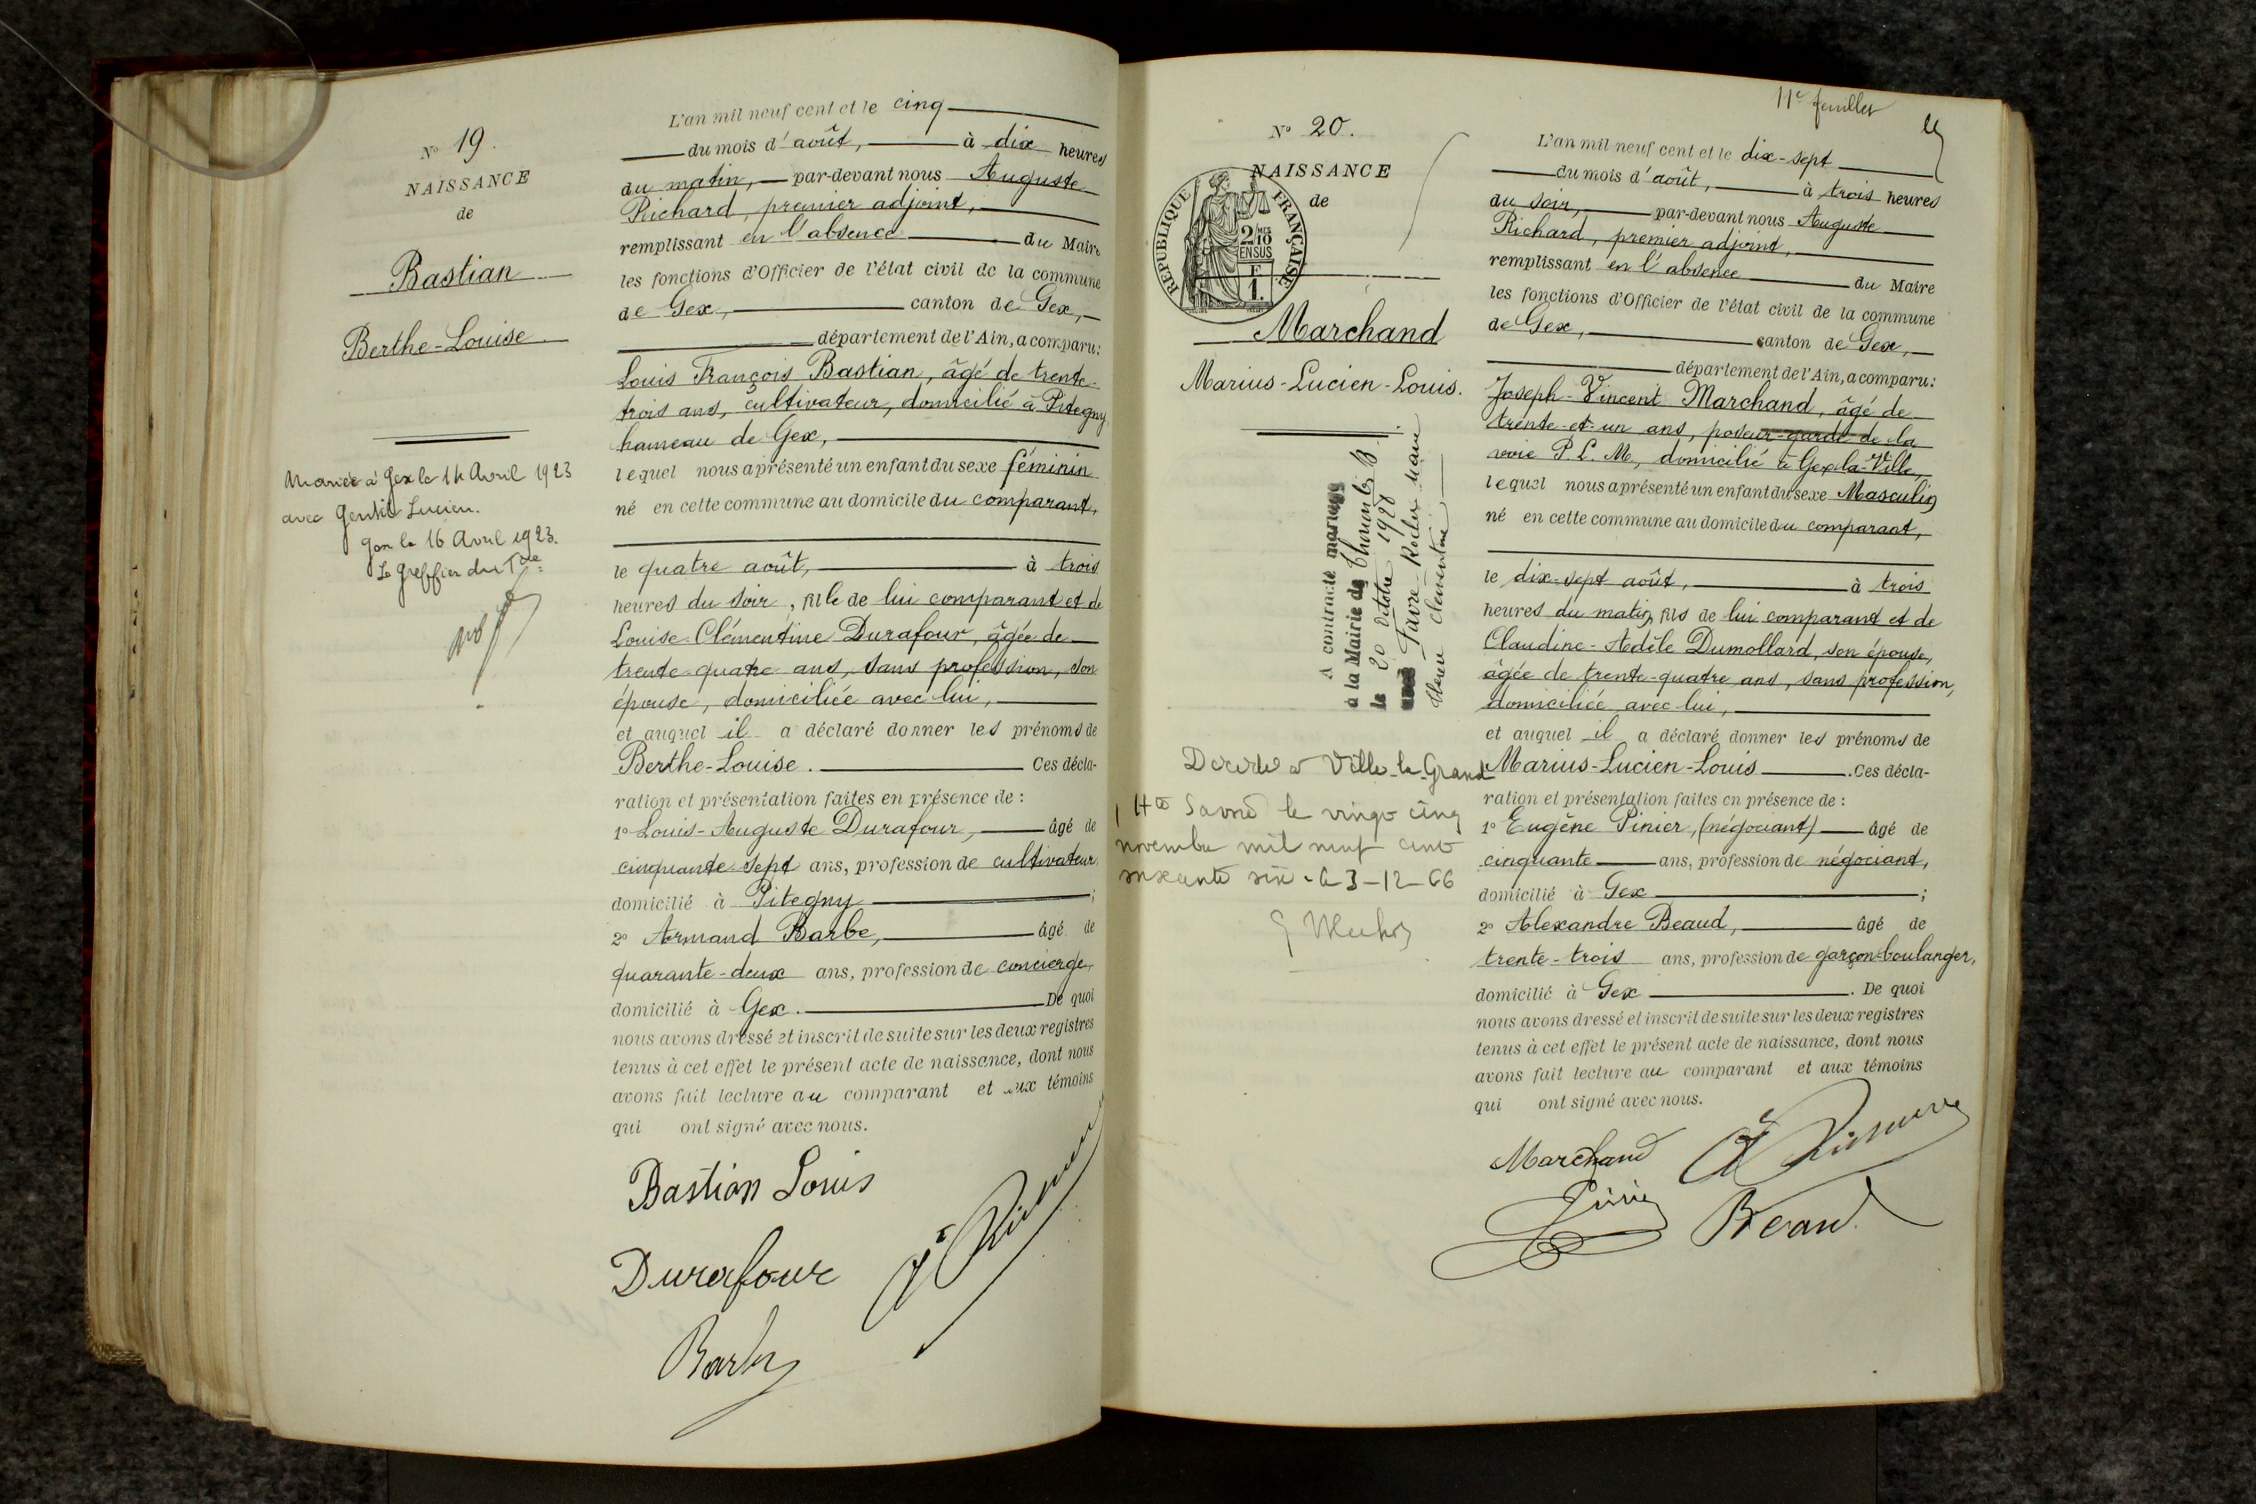 Nº 19.
NAISSANCE
de
Bastian
Berthe-Louise
Mariée à Gex le 14 Avril 1923
avec Gentil Lucien.
Gex le 16 Avril 1923.
Le Greffier du Tal
L'an mil neuf cent et le cinq
du mois d'août, à dix heures
du matin, par-devant nous Auguste
Richard, premier adjoint,
remplissant en l'absence du Maire
les fonctions d'Officier de l'état civil de la commune
de Gex, canton de Gex,
département de l'Ain, a comparu:
Louis François Bastian, âgé de trente-
trois ans, cultivateur, domicilié à Pitegny
hameau de Gex,
lequel nous a présenté un enfant du sexe féminin
né en cette commune au domicile du comparant,
le quatre août, à trois
heures du soir, fille de lui comparant et de
Louise-Clémentine Durafour, âgée de
trente-quatre ans, sans profession, son
épouse, domiciliée avec lui,
et auquel il a déclaré donner les prénoms de
Berthe-Louise. Ces décla-
ration et présentation faites en présence de :
1º Louis-Auguste Durafour, âgé de
cinquante-sept ans, profession de cultivateur
domicilié à Pitegny ;
2º Armand Barbe, âgé de
quarante-deux ans, profession de concierge,
domicilié à Gex. De quoi
nous avons dressé et inscrit de suite sur les deux registres
tenus à cet effet le présent acte de naissance, dont nous
avons fait lecture au comparant et aux témoins
qui ont signé avec nous.
Bastian Louis
Durafour
Barbe
11e feuillet
Nº 20.
NAISSANCE
de
RÉPUBLIQUE FRANÇAISE
2/10 MES
EN SUS
F
1.
Marchand
Marius-Lucien-Louis.
A contracté mariage
à la Mairie de
le 20 octobre 1928
avec Favre-Rochex Marie
Clémentine
Décédé à Ville-la-Grand
Hte Savoie le vingt cinq
novembre mil neuf cent
soixante six. Le 3-12-66
L'an mil neuf cent et le dix-sept
du mois d'août, à trois heures
du soir, par-devant nous Auguste
Richard, premier adjoint,
remplissant en l'absence du Maire
les fonctions d'Officier de l'état civil de la commune
de Gex, canton de Gex,
département de l'Ain, a comparu:
Joseph-Vincent Marchand, âgé de
trente-et-un ans, poseur-garde de la
voie P. L. M, domicilié à Gex-la-Ville,
lequel nous a présenté un enfant du sexe Masculin
né en cette commune au domicile du comparant,
le dix-sept août, à trois
heures du matin, fils de lui comparant et de
Claudine-Adèle Dumollard, son épouse,
âgée de trente-quatre ans, sans profession,
domiciliée avec lui,
et auquel il a déclaré donner les prénoms de
Marius-Lucien-Louis. Ces décla-
ration et présentation faites en présence de :
1º Eugène Pinier, (négociant) âgé de
cinquante ans, profession de négociant,
domicilié à Gex ;
2º Alexandre Beaud, âgé de
trente-trois ans, profession de garçon-boulanger,
domicilié à Gex. De quoi
nous avons dressé et inscrit de suite sur les deux registres
tenus à cet effet le présent acte de naissance, dont nous
avons fait lecture au comparant et aux témoins
qui ont signé avec nous.
Marchand
Pinier
Beaud